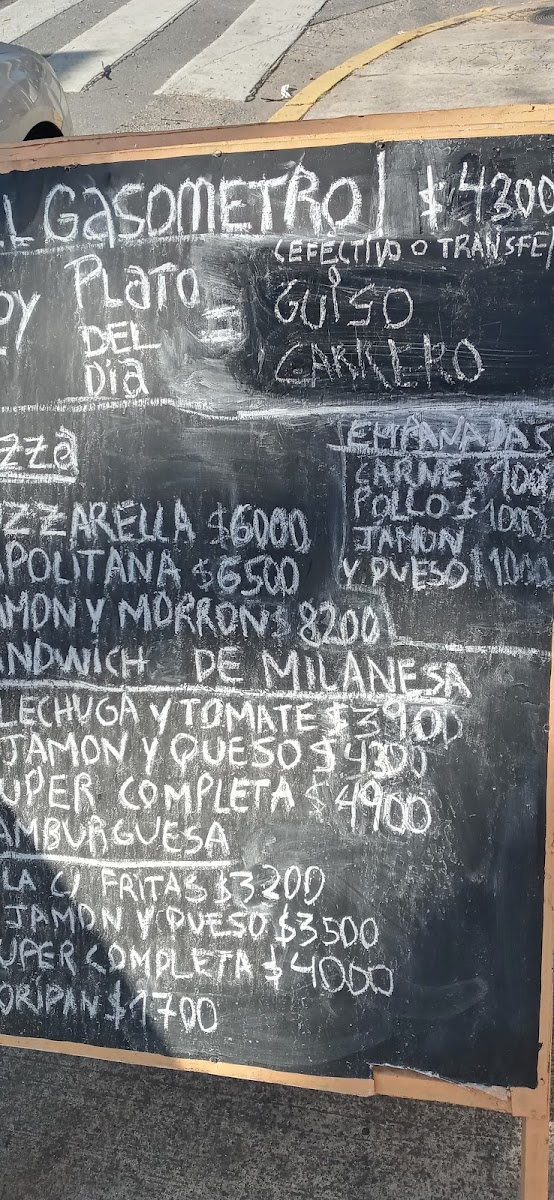 L GASOMETRO $4300
(EFECTIVO O TRANSFE
OY PLATO = GUISO
DEL CARRERO
DIA
ZZA
EMPANADAS
CARNE $1000
POLLO $1000
JAMON
Y QUESO $1000
ZZARELLA $6000
POLITANA $6500
MON Y MORRON $8200
NDWICH DE MILANESA
LECHUGA Y TOMATE $3900
JAMON Y QUESO $4300
UPER COMPLETA $4900
AMBURGUESA
LA C/ FRITAS $3200
JAMON Y QUESO $3500
UPER COMPLETA $4000
ORIPAN $1700